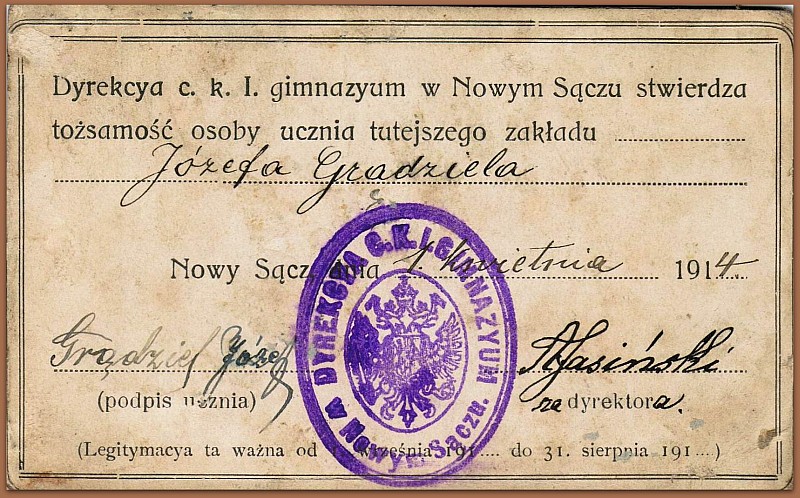 Dyrekcya c. k. I. gimnazyum w Nowym Sączu stwierdza
tożsamość osoby ucznia tutejszego zakładu
Józefa Gradziela
Nowy Sącz, dnia 1 Kwietnia 1914.
DYREKCYA C.K. I GIMNAZYUM
w Nowym Sączu.
Grądziel Józef
Jasiński
(podpis ucznia)
za dyrektora.
(Legitymacya ta ważna od września 191.... do 31. sierpnia 191....)